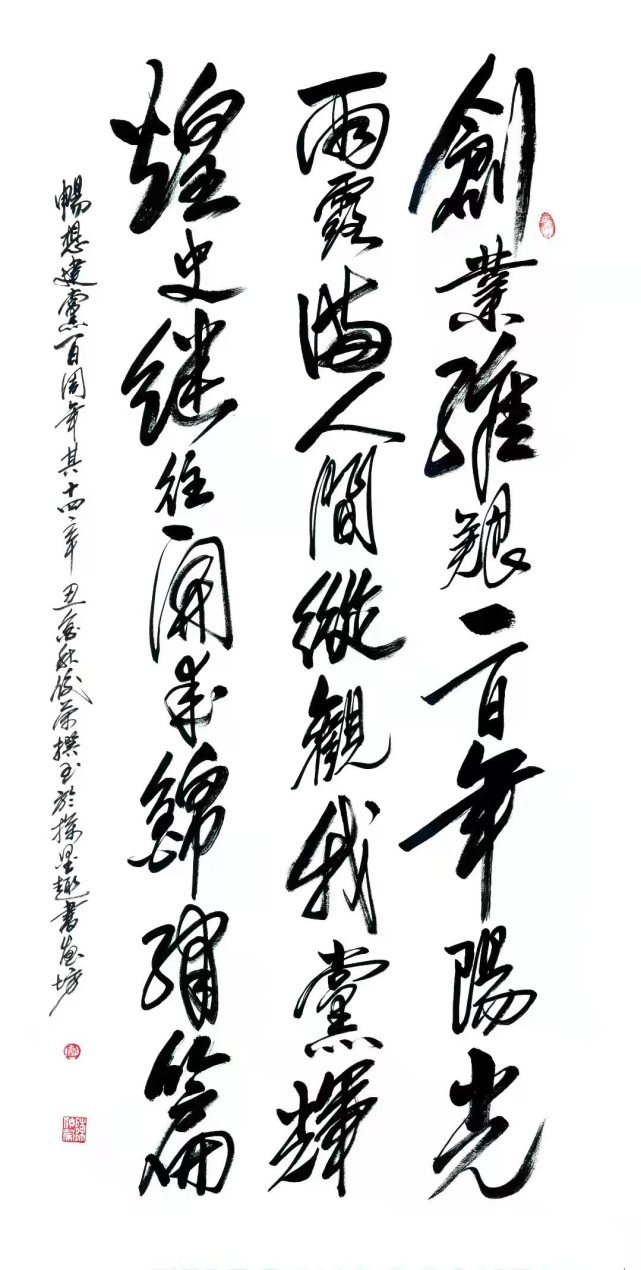 創業維艱一百年陽光
雨露滿人間縱觀我黨輝
煌史継往開來錦繡篇
暢想建黨百周年其十四章 丑秋榮撰於探墨趣書畫坊